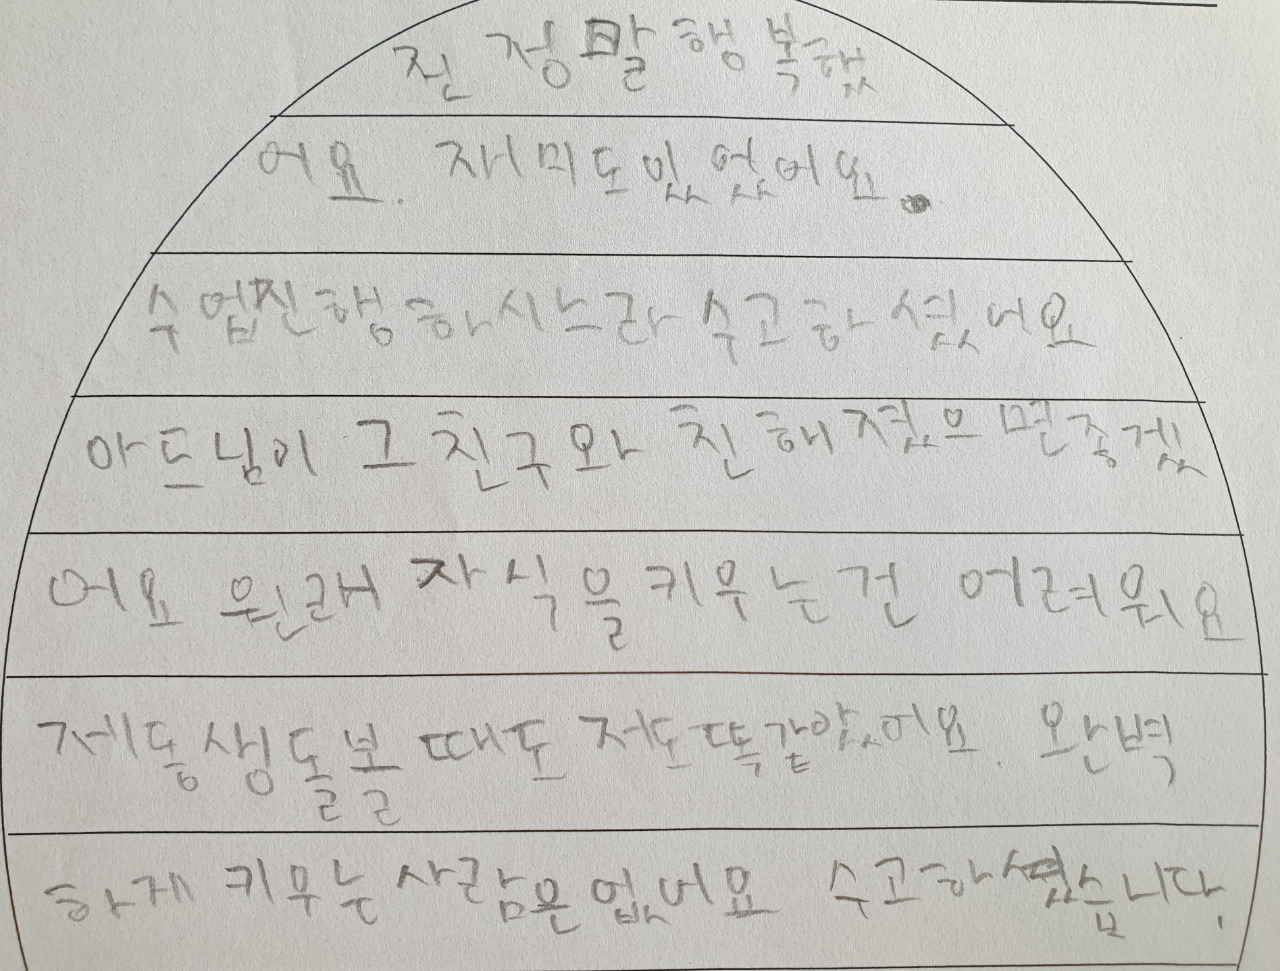 진 정말 행복했
어요. 재미도있었어요.
수업진행하시느라 수고하셨어요
아드님이 그 친구와 친해졌으면좋겠
어요 원래 자식을키우는건 어려워요
제동생돌볼때도 저도똑같았어요. 완벽
하게 키우는사람은없어요 수고하셨습니다.